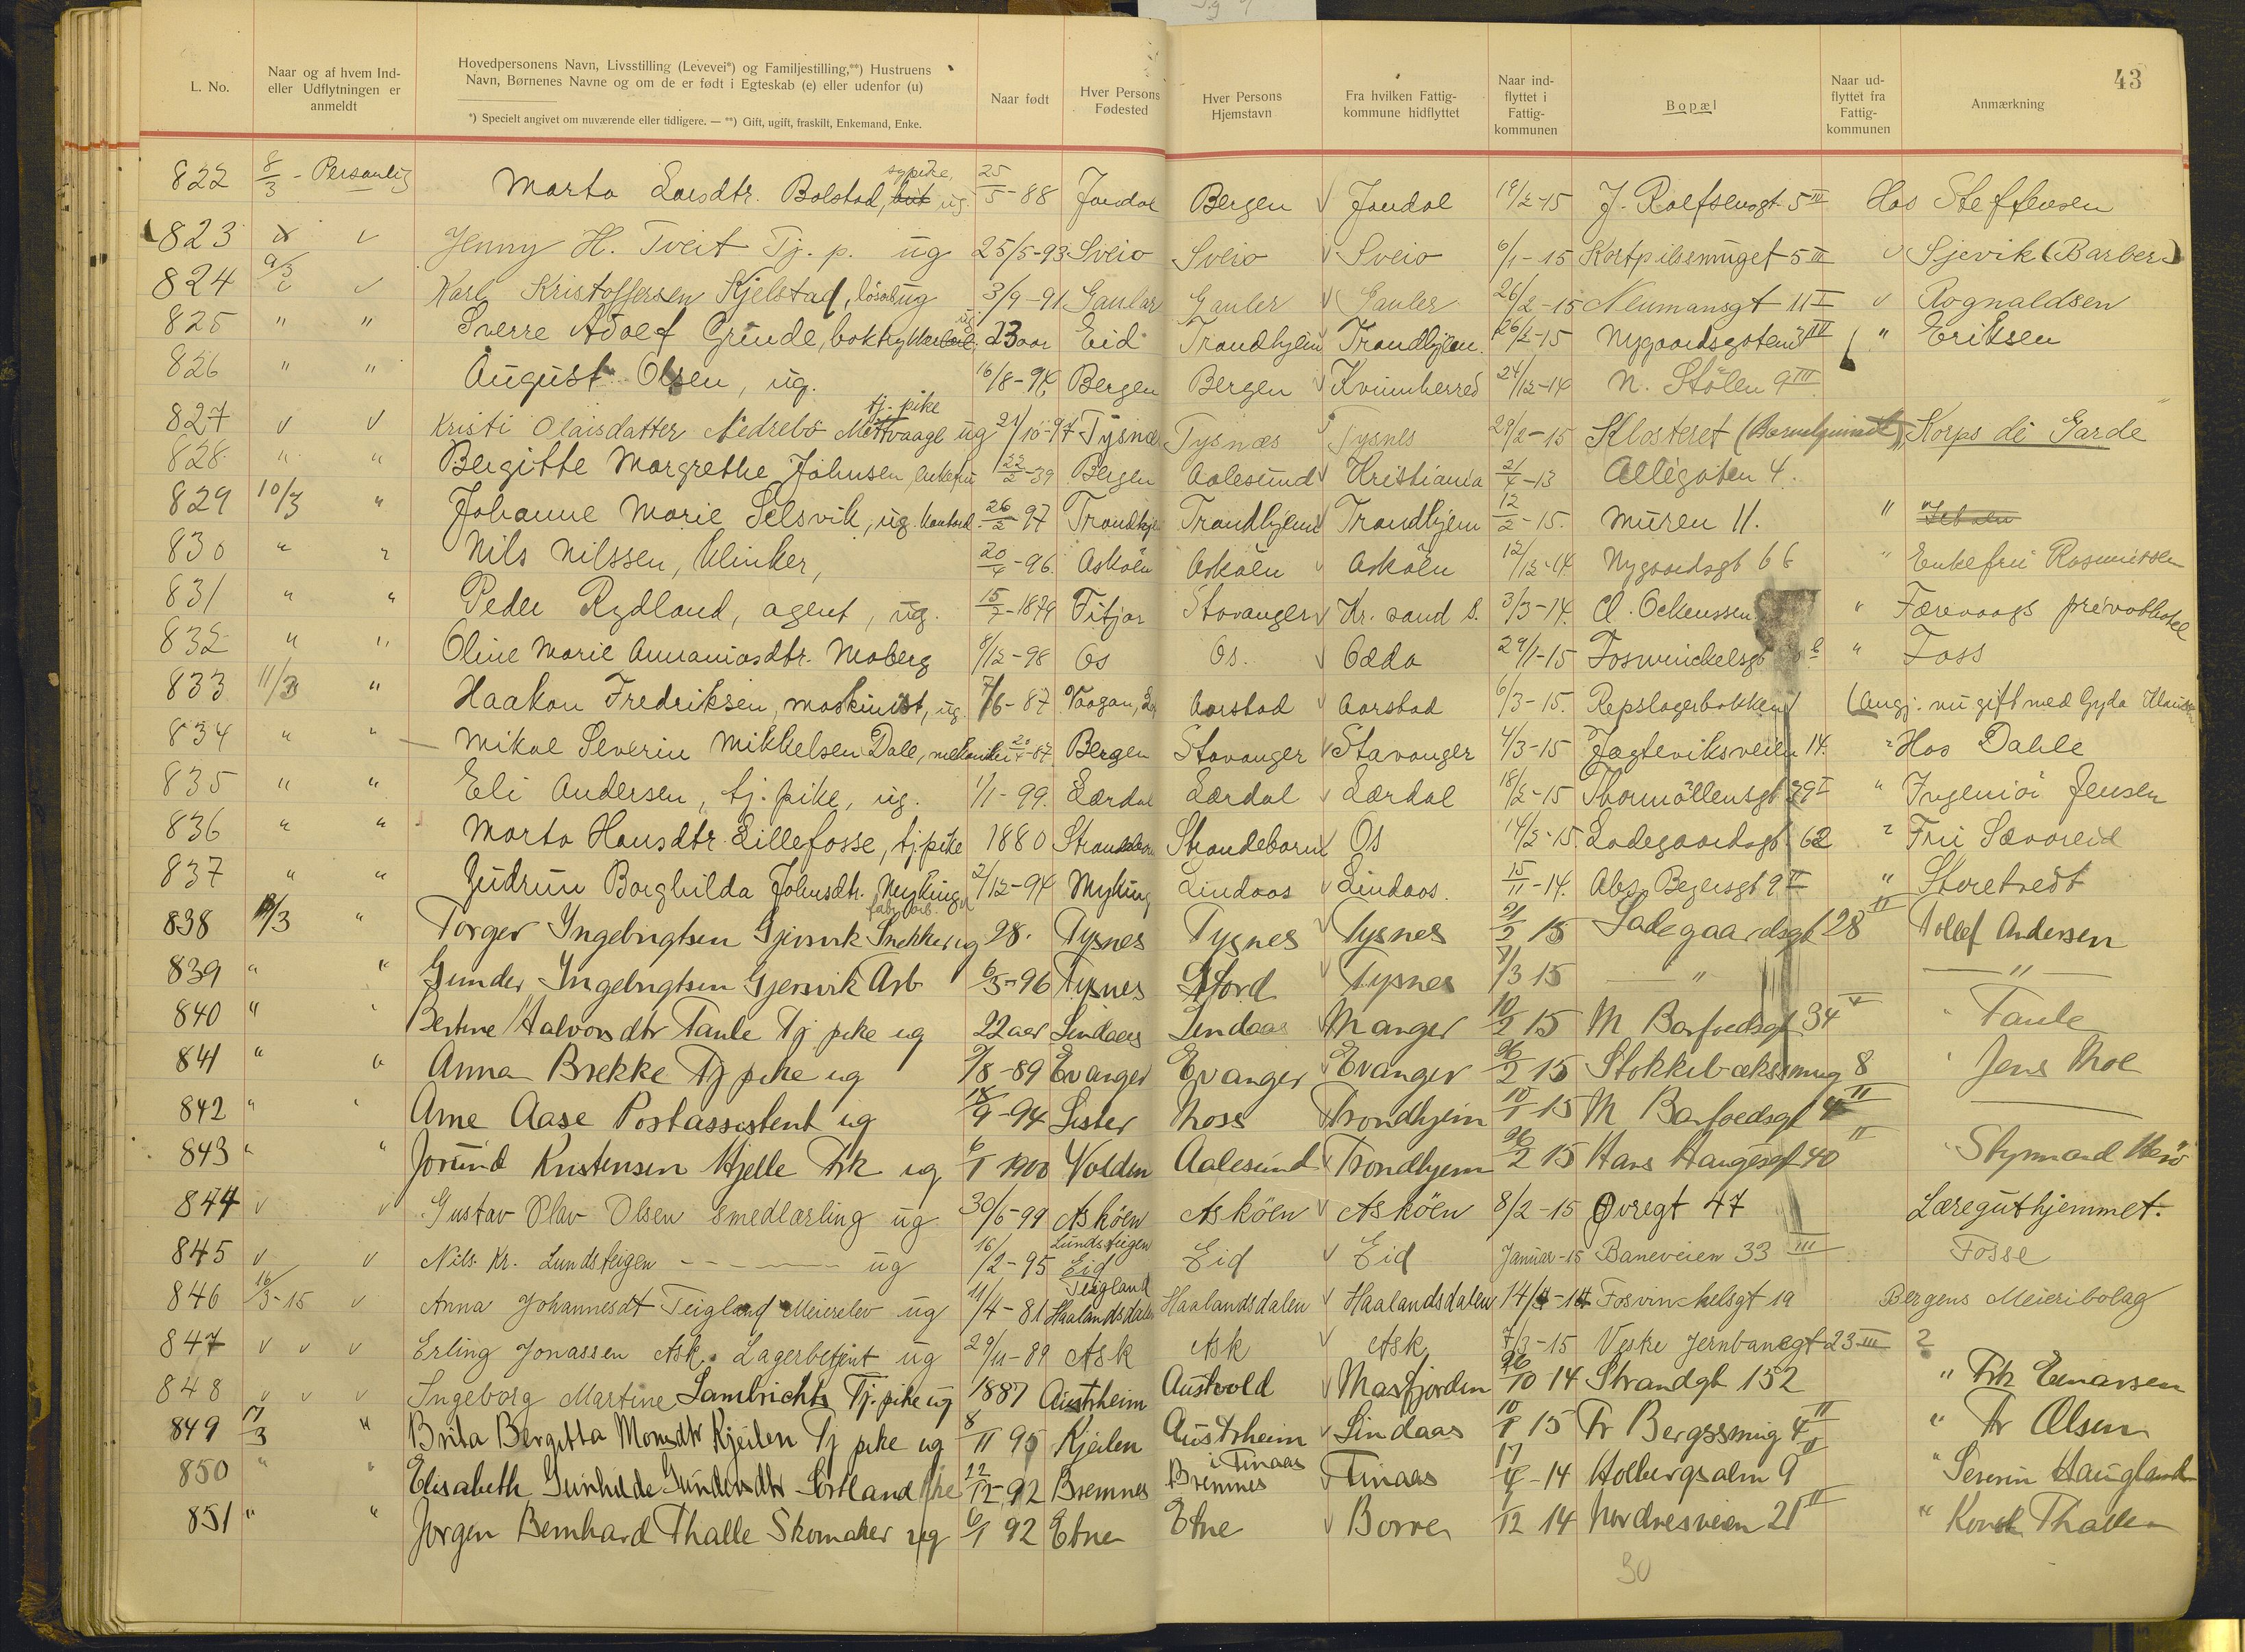 43
L. No.
Naar og af hvem Ind- eller Udflytningen er anmeldt
Hovedpersonens Navn, Livsstilling (Levevei*) og Familjestilling,**) Hustruens Navn, Børnenes Navne og om de er født i Egteskab (e) eller udenfor (u)
*) Specielt angivet om nuværende eller tidligere. — **) Gift, ugift, fraskilt, Enkemand, Enke.
Naar født
Hver Persons Fødested
Hver Persons Hjemstavn
Fra hvilken Fattig- kommune hidflyttet
Naar ind- flyttet i Fattig- kommunen
Bopæl
Naar ud- flyttet fra Fattig- kommunen
Anmærkning
822 8/3 - Personlig Marta Larsdtr. Bolstad, sypike, ug. 25/5-88 Jondal Bergen √ Jondal 18/2-15 J. Rolfsensgt 5 III Hos Steffensen
823 v Jenny H. Tveit Tj. p. ug 25/5-93 Sveio Sveio √ Sveio 6/1-15 Kortpilsmuget 5 II v Sjevik (Barber)
824 9/3 v Karl Kristoffersen Kjelstad, løsarb ug 3/9-91 Gaular Gauler √ Gauler 26/2-15 Neumansgt 11 I v Rognaldsen
825 " " Sverre Adolf Grinde, boktrykker ug. 23 aar Eid Trondhjem Trondhjem. 26/2-15 Nygaardsgaten III " Eriksen
826 " " August Olsen, ug. 16/8-94 Bergen Bergen √ Kvinnherred 24/12-14 N. Stölen 9 III
827 v v Kristi Olaisdatter Nedrebö Mottvaage tj. pike ug 21/10-97 Tysnæs Tysnæs Tysnes 29/2-15 Klosteret Korps de Garde
828 " " Bergitte Margrethe Johnsen, enkefru 22/2-39 Bergen Aalesund √ Kristiania 21/4-13 Allégaten 4.
829 10/3 " Johanne Marie Selsvik, ug. kontord. 26/2-97 Trondhjem Trondhjem √ Trondhjem 12/2-15. Muren 11. "
830 " " Nils Nilssen, klinker, 20/4-96. Asköen Asköen √ Asköen 12/12-14 Nygaardsgt 66 " Enkefru Rasmussen
831 " " Peder Rydland, agent, ug. 15/7-1879 Fitjar Stavanger √ Kr. sand S. 3/3-14. Cl. Ockenssen " Færevaags privathotel
832 " " Oline Marie Annaniasdtr. Moberg 8/12-98 Os Os. √ Odda 29/1-15 Foswinckelsgt " Foss
833 11/3 " Haakon Fredriksen, maskinist, ug. 7/6-87 Vaagan, Aarstad Aarstad 6/3-15. Repslagerbakken (Angj. nu gift med Gyda
834 " " Mikal Severin Mikkelsen Dale, mekaniker 20/4-87 Bergen Stavanger √ Stavanger 4/3-15 Jægteviksveien 14. " Hos Dahle
835 " " Eli Andersen, tj. pike, ug. 1/1-99. Lærdal Lærdal √ Lærdal 18/2-15 Thormöllensgt 39 I " Ingeniör Jensen
836 " " Marta Hansdtr. Lillefosse, tj. pike 1880 Strandebarm Strandebarm √ Os 14/2-15. Ladegaardsgt. 62 " Fru Sævareid
837 " " Gudrun Borghilda Johnsdtr. Myking fabr arb. 2/12-94 Myking Lindaas √ Lindaas. 15/11-14. Absl. Beyersgt 9 II " Storetvedt
838 12/3 " Torger Ingebrigtsen Gjersvik Snekker ug 28. Tysnes Tysnes √ Tysnes 21/2 15 Ladegaardsgt 28 II Tollef Andersen
839 " " Gunder Ingebrigtsen Gjersvik Arb 6/3-96 Tysnes Stord √ Tysnes 7/3 15 — " — — " —
840 " " Bertine Halvorsdtr Taule Tj. pike ug 22 aar Lindaas Lindaas Manger 10/2 15 M Barfoedsgt 34 " Taule
841 " " Anna Brekke Tj pike ug 7/8-89 Evanger Evanger √ Evanger 26/2 15 Stokkebæksmug 8 " Jens Moe
842 " " Arne Aase Postassistent ug 18/9-94 Lister Moss √ Trondhjem 10/1 15 M Barfoedsgt 4 II
843 " " Jorund Kristensen Hjelle Frk ug 6/1 1900 Volden Aalesund √ Trondhjem 26/2 15 Hans Haugesgt 40 II "
844 v v Gustav Olav Olsen smedlærling ug 30/5-99 Asköen Asköen √ Asköen 8/2-15 Øvregt 47 Læreguthjemmet.
845 v v Nils. Kr. Lundsteigen - - - ug 16/2-95 Lundsteigen Eid Eid √ Eid Januar-15 Baneveien 33 III Fosse
846 16/3-15 v Anna Johannesdt Teigland Meierelev ug 11/4-81 Teigland Haalandsdalen Haalandsdalen √ Haalandsdalen 14/4-14 Fosvinckelsgt 19 Bergens Meieribolag
847 v v v Erling Jonassen Ask. Lagerbetjent ug 29/11-89 Ask Ask √ Ask 7/3-15 Vestre Jernbanegt 23 III ?
848 v v v Ingeborg Martine Lambrichts Tj. pike ug 1887 Austrheim Austvold √ Masfjorden 26/10 14 Strandgt 152 " Frk Einarsen
849 17/3 " Brita Bergitta Monsdtr Kjeilen Tj pike ug 8/11 95 Kjeilen Austrheim √ Lindaas 10/1 15 Fr Bergssmug 4 II " Fr Olsen
850 " " Elisabeth Gunhilde Gundersdtr Sortland 12/12 92 Bremnes Bremnes i Finaas √ Finaas 14 Holbergsalm 9 II " Severin Haugland
851 " " Jorgen Bernhard Thalle Skomaker ug 6/1 92 Etne Etne √ Borre 1/12 14 Nordnesveien 21 II " Thalle
30